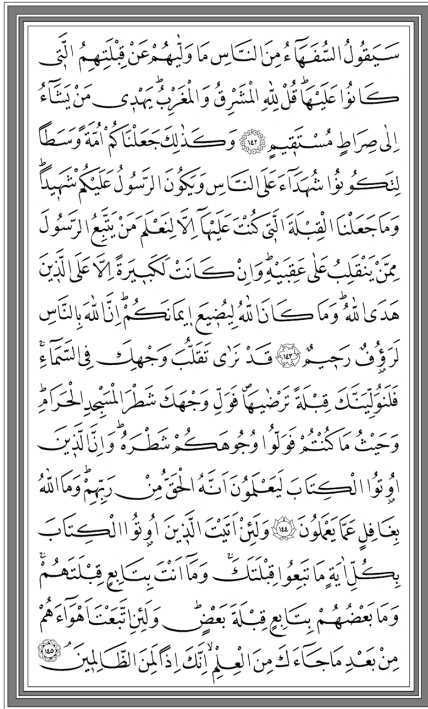 سَيَقُولُ السُّفَهَٓاءُ مِنَ النَّاسِ مَا وَلّٰيهُمْ عَنْ قِبْلَتِهِمُ الَّت۪ى
كَانُوا عَلَيْهَاۜ قُلْ لِلّٰهِ الْمَشْرِقُ وَالْمَغْرِبُۜ يَهْد۪ى مَنْ يَشَٓاءُ
اِلٰى صِرَاطٍ مُسْتَق۪يمٍ ﴿١٤٢﴾ وَكَذٰلِكَ جَعَلْنَاكُمْ اُمَّةً وَسَطًا
لِتَكُونُوا شُهَدَٓاءَ عَلَى النَّاسِ وَيَكُونَ الرَّسُولُ عَلَيْكُمْ شَه۪يدًاۜ
وَمَا جَعَلْنَا الْقِبْلَةَ الَّت۪ى كُنْتَ عَلَيْهَٓا اِلَّا لِنَعْلَمَ مَنْ يَتَّبِعُ الرَّسُولَ
مِمَّنْ يَنْقَلِبُ عَلٰى عَقِبَيْهِۜ وَاِنْ كَانَتْ لَكَب۪يرَةً اِلَّا عَلَى الَّذ۪ينَ
هَدَى اللّٰهُۜ وَمَا كَانَ اللّٰهُ لِيُض۪يعَ ا۪يمَانَكُمْۜ اِنَّ اللّٰهَ بِالنَّاسِ
لَرَؤُ۫فٌ رَح۪يمٌ ﴿١٤٣﴾ قَدْ نَرٰى تَقَلُّبَ وَجْهِكَ فِى السَّمَٓاءِۚ
فَلَنُوَلِّيَنَّكَ قِبْلَةً تَرْضٰيهَاۖ فَوَلِّ وَجْهَكَ شَطْرَ الْمَسْجِدِ الْحَرَامِۜ
وَحَيْثُ مَا كُنْتُمْ فَوَلُّوا وُجُوهَكُمْ شَطْرَهُۜ وَاِنَّ الَّذ۪ينَ
اُو۫تُوا الْكِتَابَ لَيَعْلَمُونَ اَنَّهُ الْحَقُّ مِنْ رَبِّهِمْۜ وَمَا اللّٰهُ
بِغَافِلٍ عَمَّا يَعْمَلُونَ ﴿١٤٤﴾ وَلَئِنْ اَتَيْتَ الَّذ۪ينَ اُو۫تُوا الْكِتَابَ
بِكُلِّ اٰيَةٍ مَا تَبِعُوا قِبْلَتَكَۚ وَمَٓا اَنْتَ بِتَابِعٍ قِبْلَتَهُمْۚ
وَمَا بَعْضُهُمْ بِتَابِعٍ قِبْلَةَ بَعْضٍۜ وَلَئِنِ اتَّبَعْتَ اَهْوَٓاءَهُمْ
مِنْ بَعْدِ مَا جَٓاءَكَ مِنَ الْعِلْمِۙ اِنَّكَ اِذًا لَمِنَ الظَّالِم۪ينَۢ ﴿١٤٥﴾